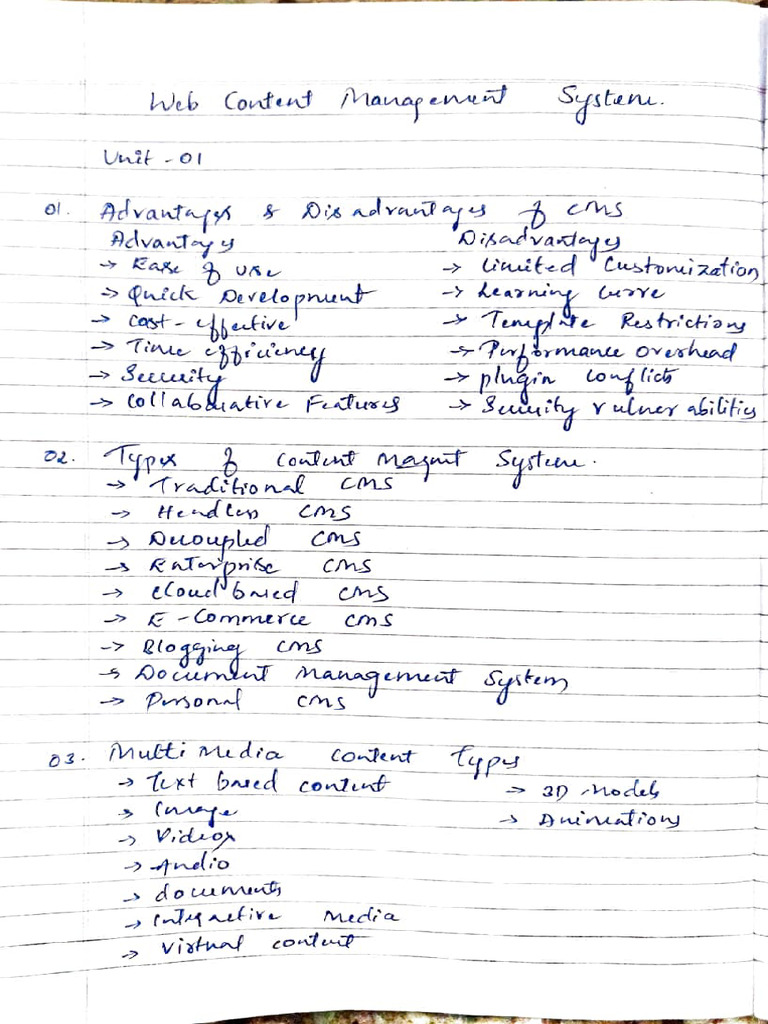 Web Content Management System.
Unit - 01
01. Advantages & Disadvantages of CMS
Advantages Disadvantages
→ Ease of use → Limited Customization
→ Quick Development → Learning Curve
→ Cost-effective → Template Restrictions
→ Time efficiency → Performance overhead
→ Security → plugin conflicts
→ Collaborative Features → Security vulnerabilities
02. Types of Content Magmt System.
→ Traditional CMS
→ Headless CMS
→ Decoupled CMS
→ Enterprise CMS
→ cloud based CMS
→ E-Commerce CMS
→ Blogging CMS
→ Document Management System
→ Personal CMS
03. Multi Media content Types
→ Text based content → 3D Models
→ Image → Animations
→ Videos
→ Audio
→ documents
→ interactive Media
→ Virtual content